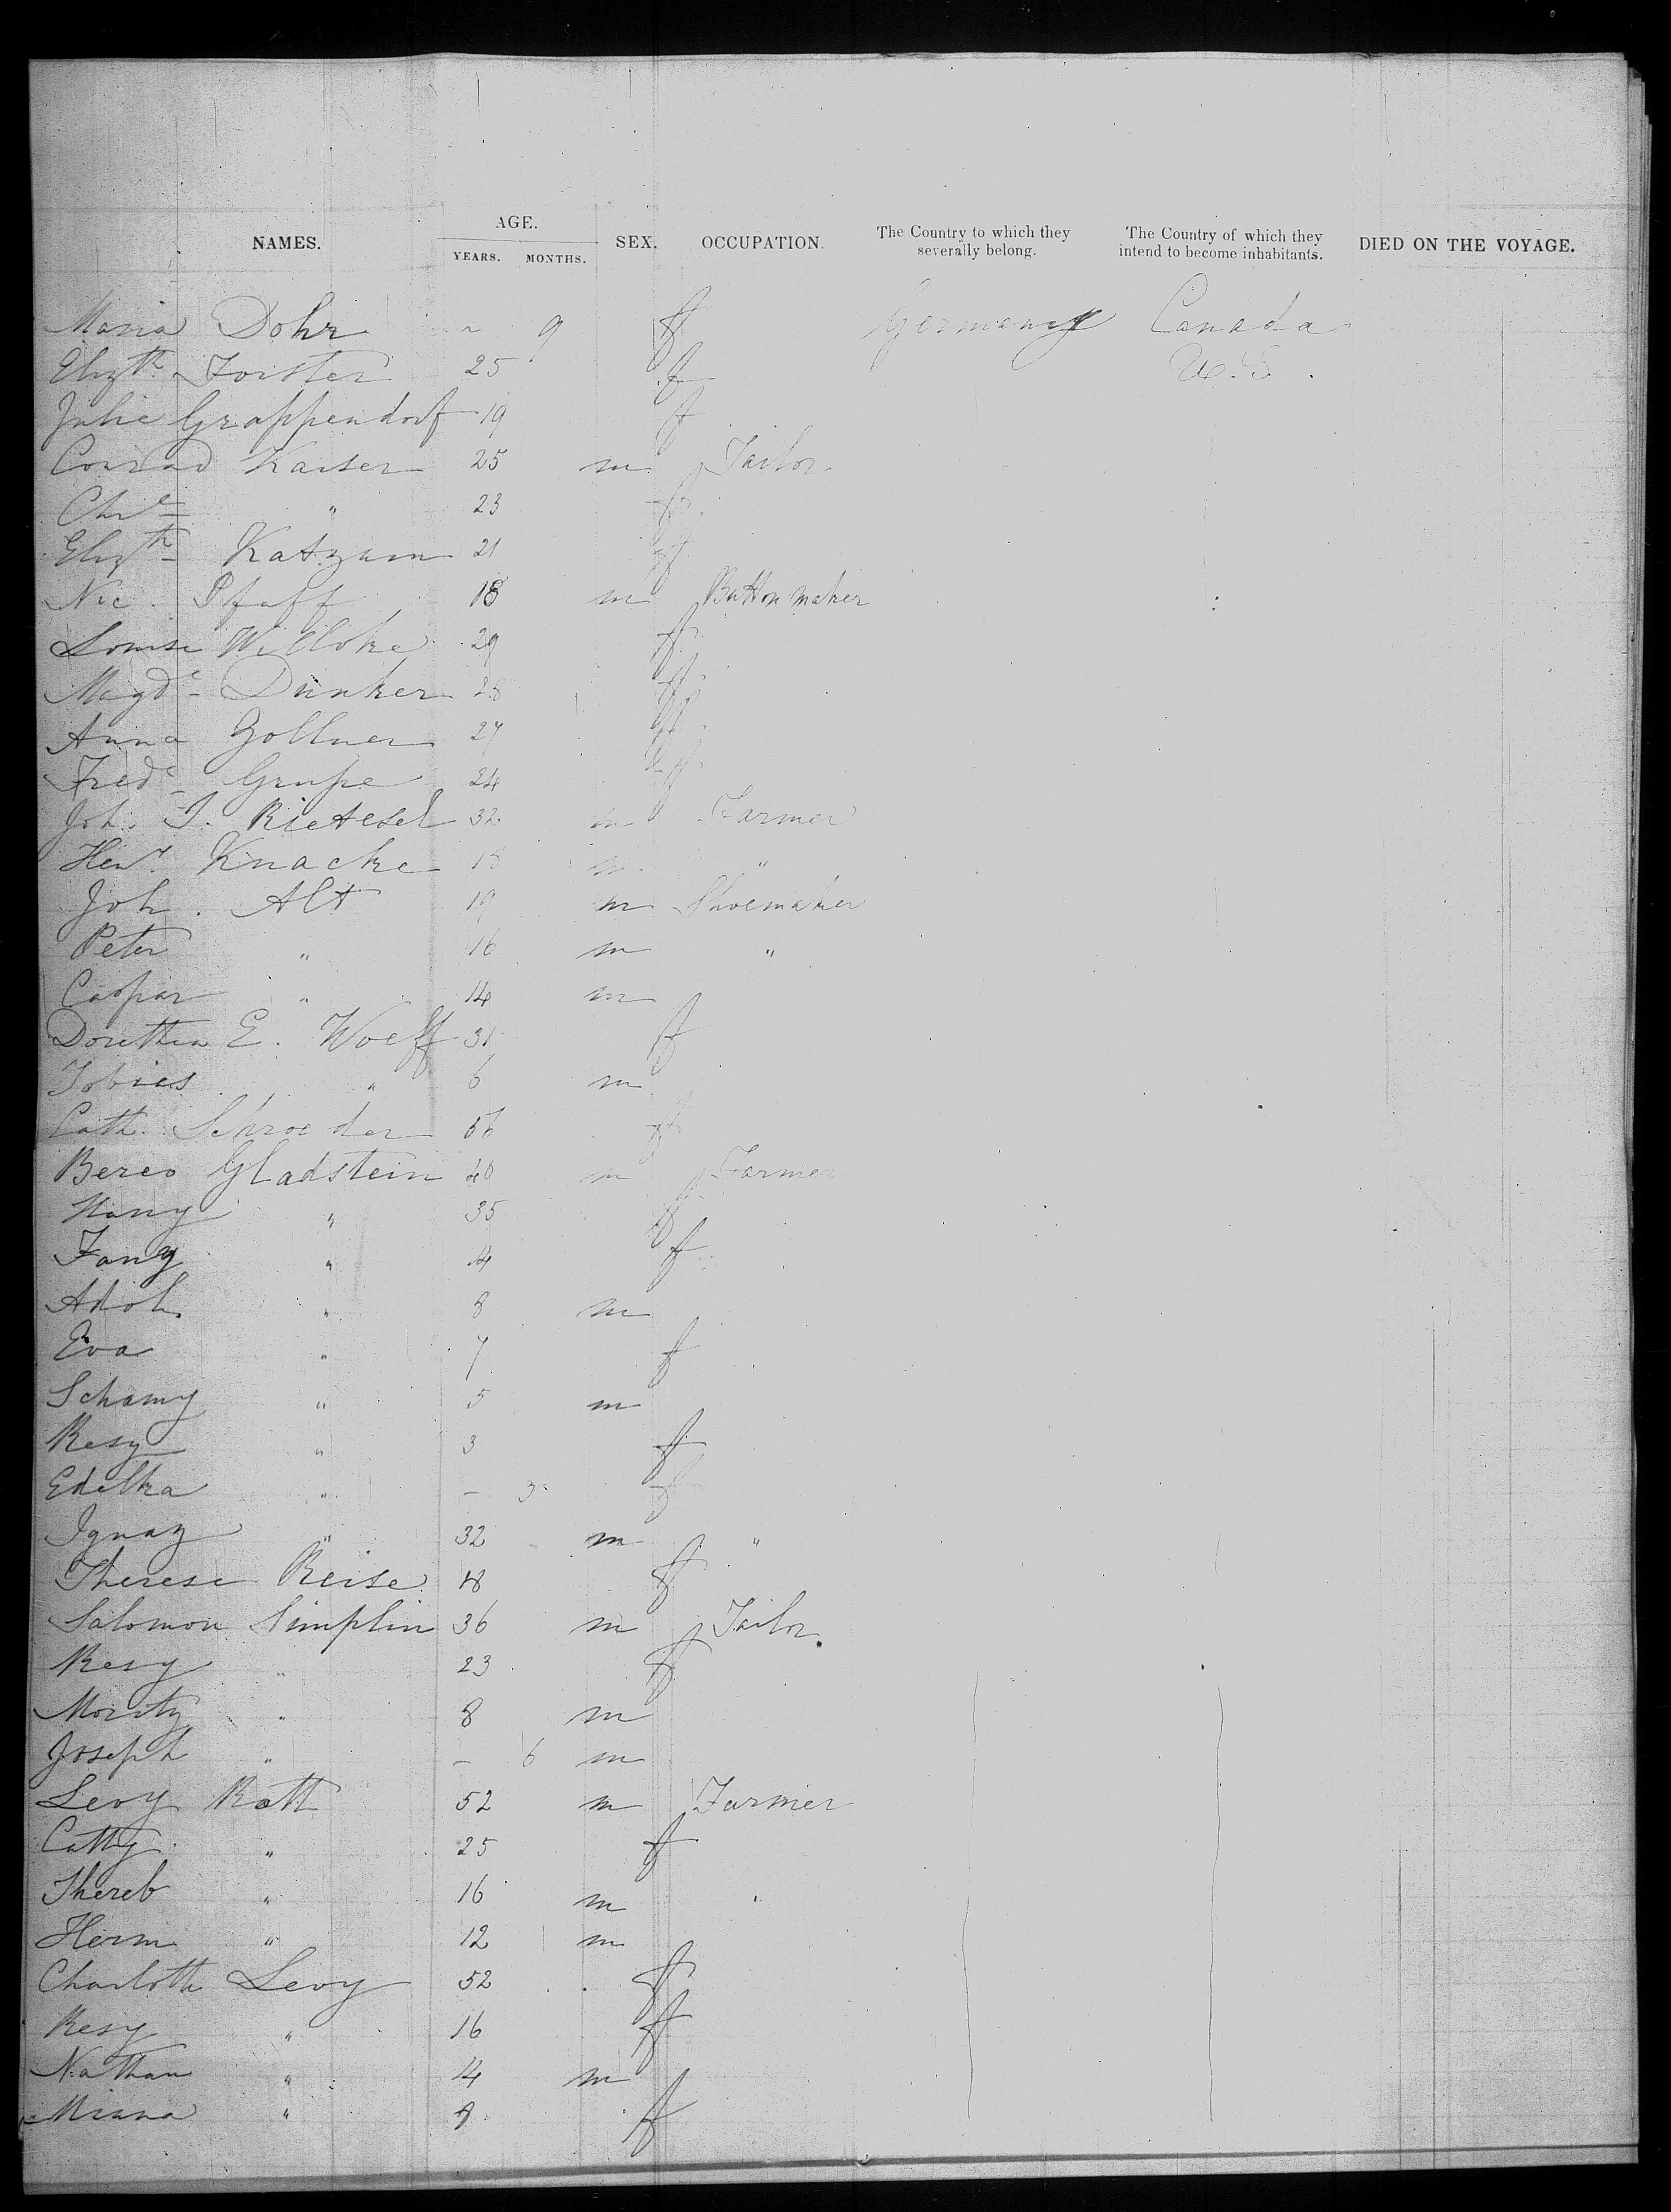 NAMES. AGE. YEARS. MONTHS. SEX. OCCUPATION. The Country to which they severally belong. The Country of which they intend to become inhabitants. DIED ON THE VOYAGE.
Maria Dohr - 9 f Germany Canada
Elizth Forster 25 f U.S.
Julie Grappendorf 19 f
Conrad Kaiser 25 m Tailor
Che " 23 f
Elizth Katzam 21 f
Nic. Pfaff 18 m Button maker
Louise Willoke 29 f
Magde Dunker 28 f
Anna Gollner 27 f
Frede Grupe 24 f
Joh. J. Rietesel 32 m Farmer
Henr. Knacke 18 m "
Joh. Alt 19 m Shoemaker
Peter " 16 m "
Caspar " 14 m
Dorethea E. Woeff 31 f
Tobies " 6 m
Cath. Schroeder 56 f
Berco Gladstein 40 m Farmer
Hany " 35 f
Fany " 4 f
Adoh. " 8 m
Eva " 7 f
Schamy " 5 m
Resy " 3 f
Edelka " - 3 f
Ignaz " 32 m "
Therese Reise 18 f
Salomon Simplin 36 m Tailor
Resy " 23 f
Moritz " 8 m
Joseph " - 6 m
Levy Rott 52 m Farmer
Catty " 25 f
Thereb " 16 m "
Herm " 12 m
Charlotte Levy 52 f
Resy " 16 f
Nathan " 14 m
Minna " 9 f